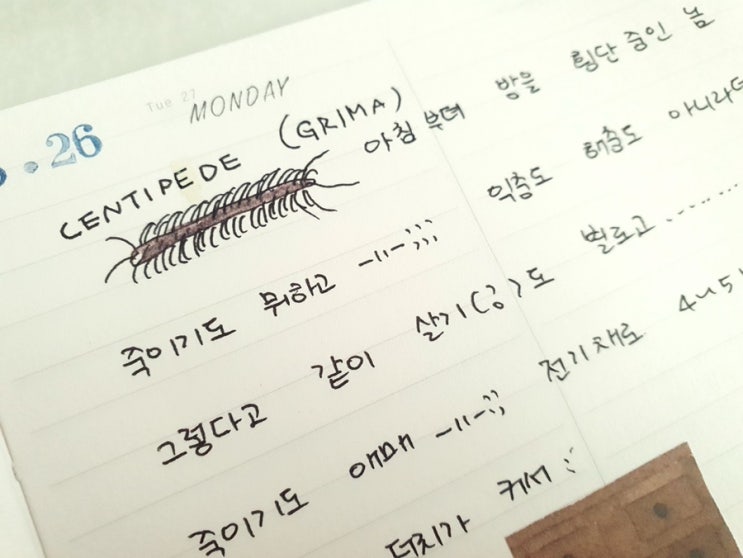 Tue 27
MONDAY
.26
CENTIPEDE (GRIMA)
죽이기도 뭐하고 -_-;;;
그렇다고 같이 살기(?)도
죽이기도 애매 -_-;;
더치가 커서
아침부터 방을 횡단 중인 놈
익충도 해충도 아니라
별로고........
전기채로 4~5